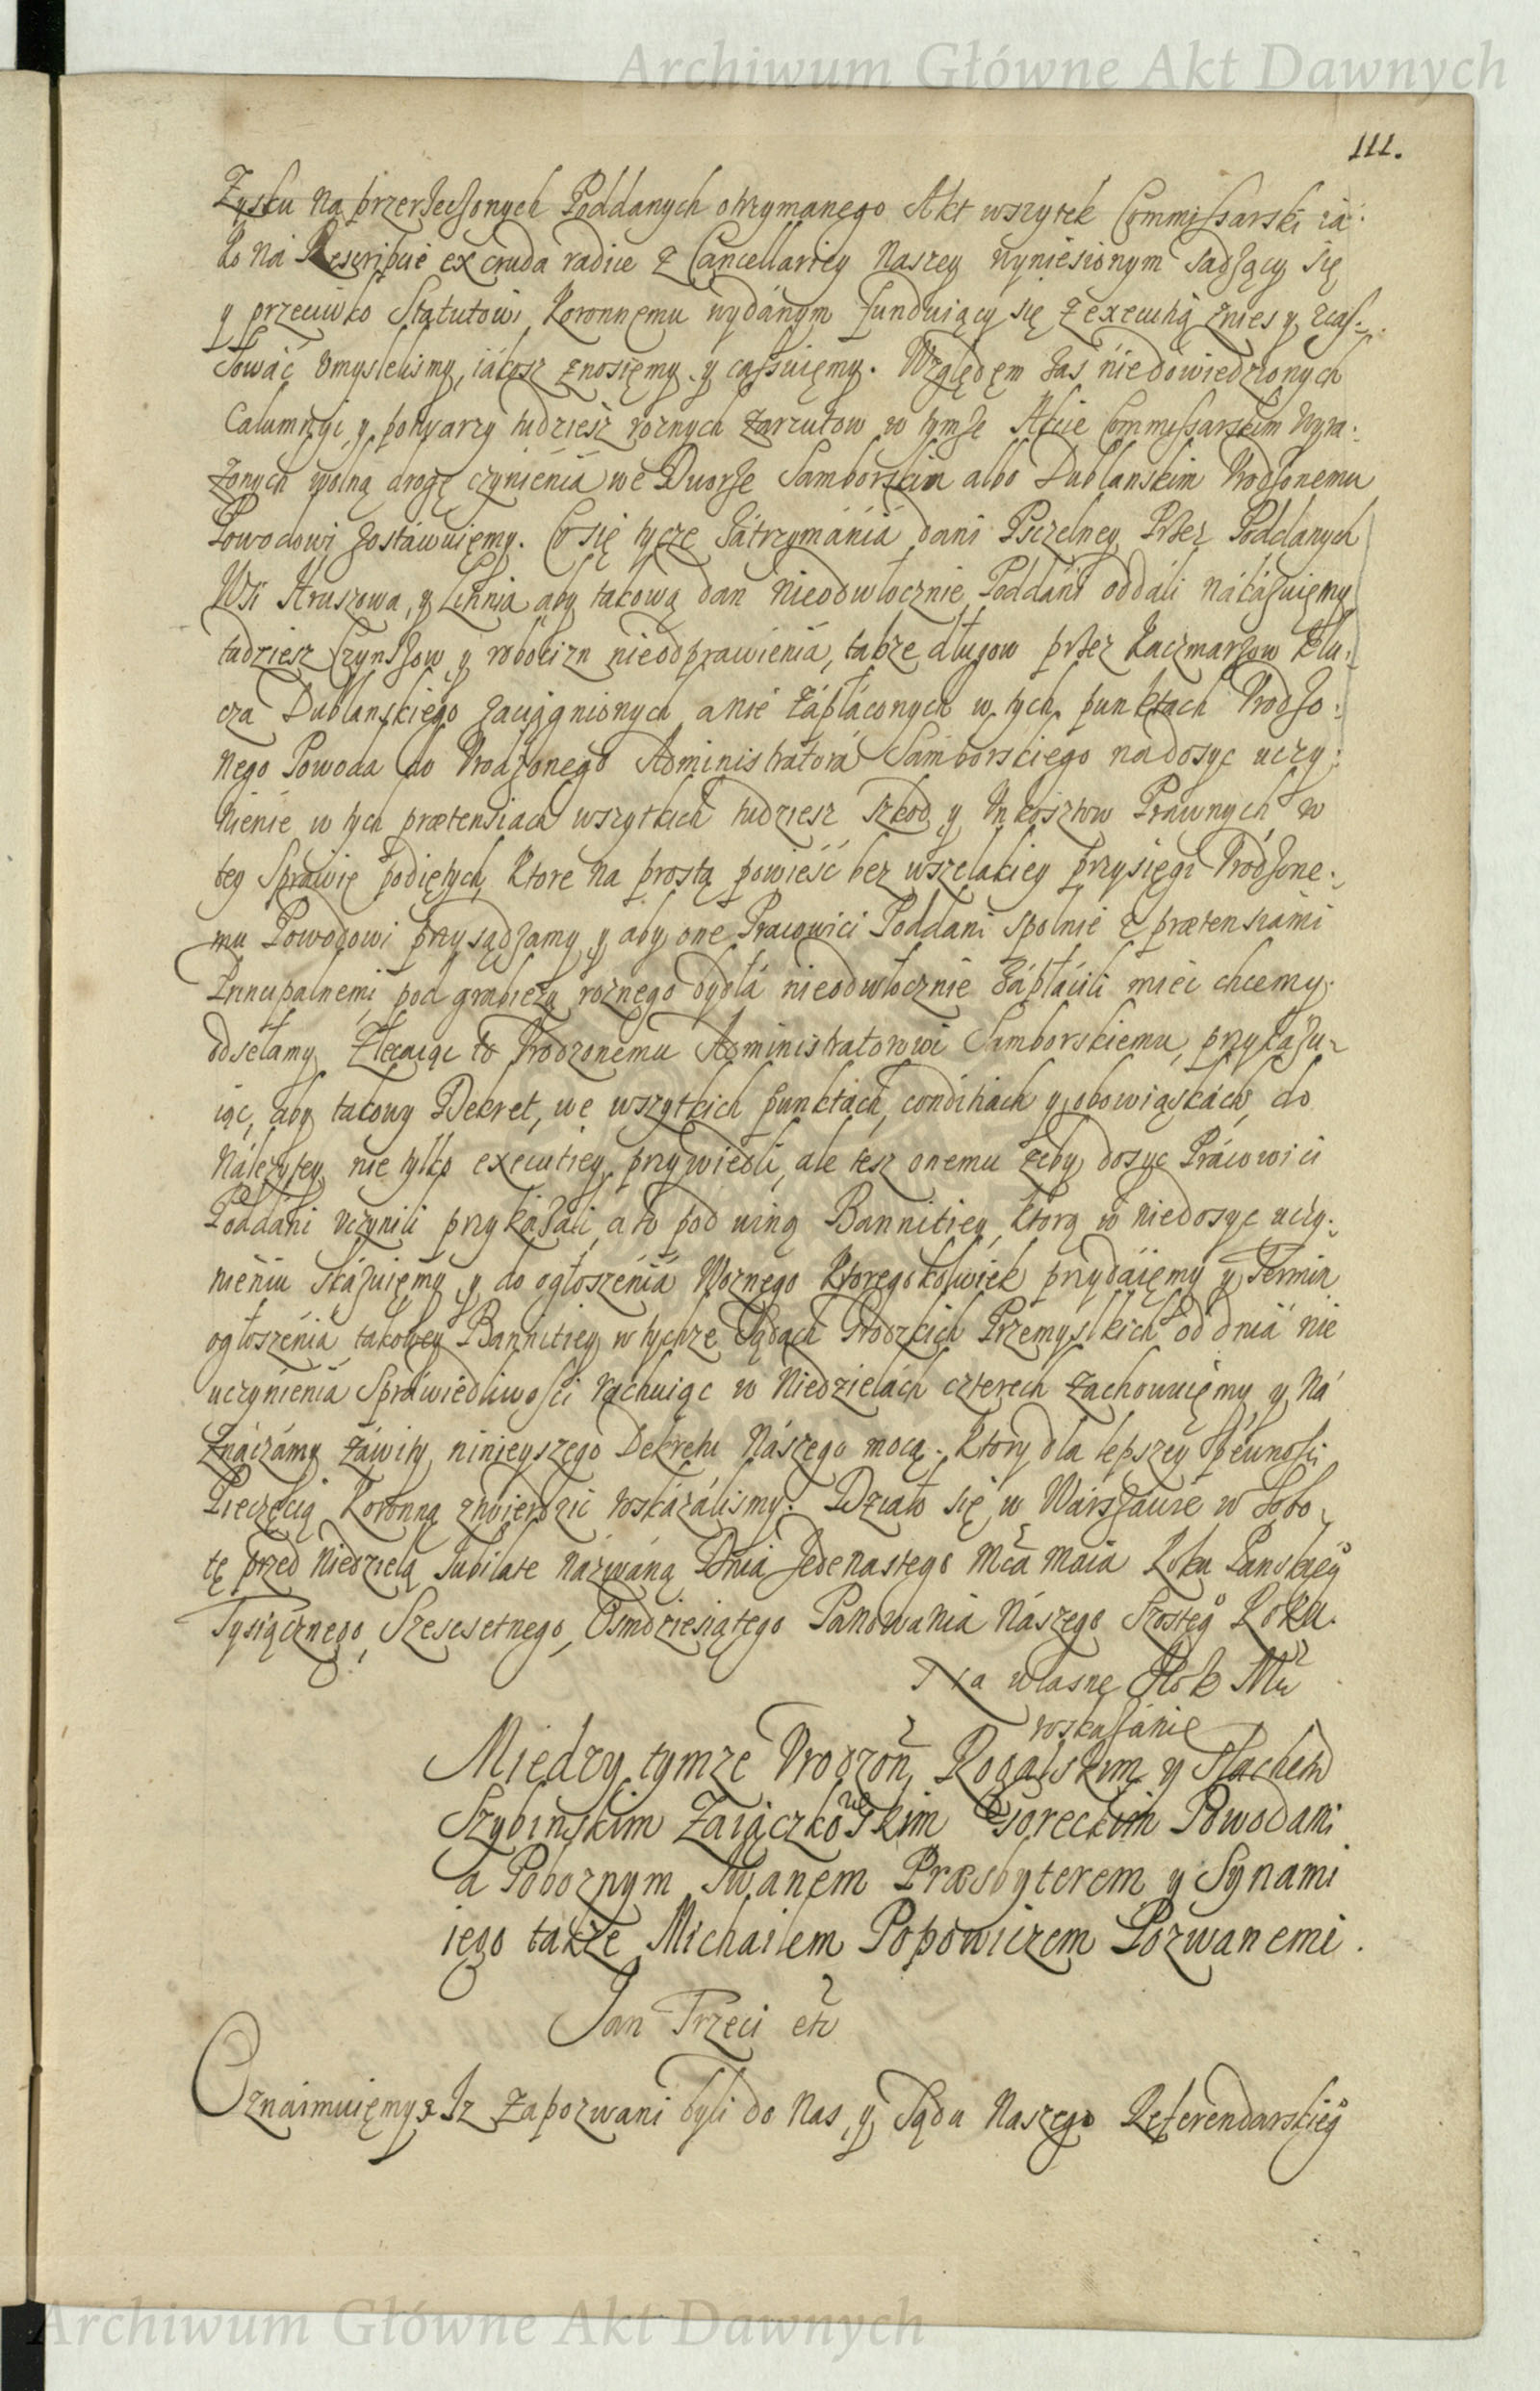 Archiwum Główne Akt Dawnych
111.
Zysku na przerzeczonych Poddanych otrzymanego Akt wszytek Commissarski ia-
ko na Rescripcie ex cruda radice z Cancellariey Naszey wyniesionym sadzący się
y przeciwko Statutowi Koronnemu wydanym funduiący się z executią znieść y zcas-
sować umysleliśmy, iakosz znosięmy y cassuięmy. Względęm zas niedowiedzionych
Calumnyi, y potwarzy tudziesz roznych zarzutow w tymze Akcie Commissarskim wyra-
zonych wolną drogę czynięnia we Dworze Samborskim albo Dublanskim Urodzonemu
Powodowi zostawuięmy. Co się tycze zatrzymania dani Pszczelney Przez Poddanych
Wsi Hruszowa, y Litinia aby takową dan nieodwłocznie Poddani oddali nakazuięmy
tudziesz Czynszow y robocizn nieodprawienia, takze długow przez Kaczmarzow Klu-
cza Dublanskiego zaciągnionych a nie zapłaconych w tych punktach Urodzo-
nego Powoda do Urodzonego Administratora Samborskiego na dosyc uczy-
nienie w tych prætensiach wszytkich tudziesz szkod y Unkosztow Prawnych w
tey Sprawie podiętych, Ktore na prostą powieść bez wszelakiey przysięgi Urodzone-
mu Powodowi przysądzamy y aby one Pracowici Poddani spolnie z prætensiami
Principalnemi pod grabieżą roznego bydła nieodwłocznie zapłacili miec chcemy,
odsełamy Zlecaiąc to Urodzonemu Administratorowi Samborskiemu, przykazu-
iąc, aby takowy Dekret, we wszytkich punktach, conditiach y obowiąskach, do
należytey nie tylko executiey przywiedli, ale tesz onemu żeby dosyc Pracowici
Poddani uczynili przykazali, a to pod winą Bannitiey, ktorą w niedosyc uczy-
nieniu skazuięmy y do ogłoszenia Woznego Ktoregokolwiek przydaięmy y Termin
ogłoszenia takowey Bannitiey w tychze Sądach Grodzkich Przemyslkich od dnia nie
uczynienia Sprawiedliwości rachuiąc w Niedzielach czterech zachowuięmy y na
znaczamy zawity ninieyszego Dekretu Naszego mocą. Ktory dla lepszey pewności
Pieczęcią Koronną ztwierdzić roskazaliśmy. Działo się w Warszawie w Sobo-
tę przed Niedzielą Jubilate nazwaną Dnia Jedenastego Mca Maia Roku Panskieg°
Tysiącznego, Szescsetnego, Osmdziesiątego Panowania Naszego Szosteg° Roku.
Na własne JKo Mci
roskazanie
Miedzy tymze Urodzon Rogalskim y Slachetn
Szybinskim Zaiączkowskim Goreckim Powodami
a Poboznym Iwanem Præsbyterem y Synami
iego takze Michaiłem Popowiczem Pozwanemi.
Jan Trzeci etc
Oznaimuięmy Iz Zapozwani byli do Nas, y Sądu Naszego Referendarskieg°
Archiwum Główne Akt Dawnych